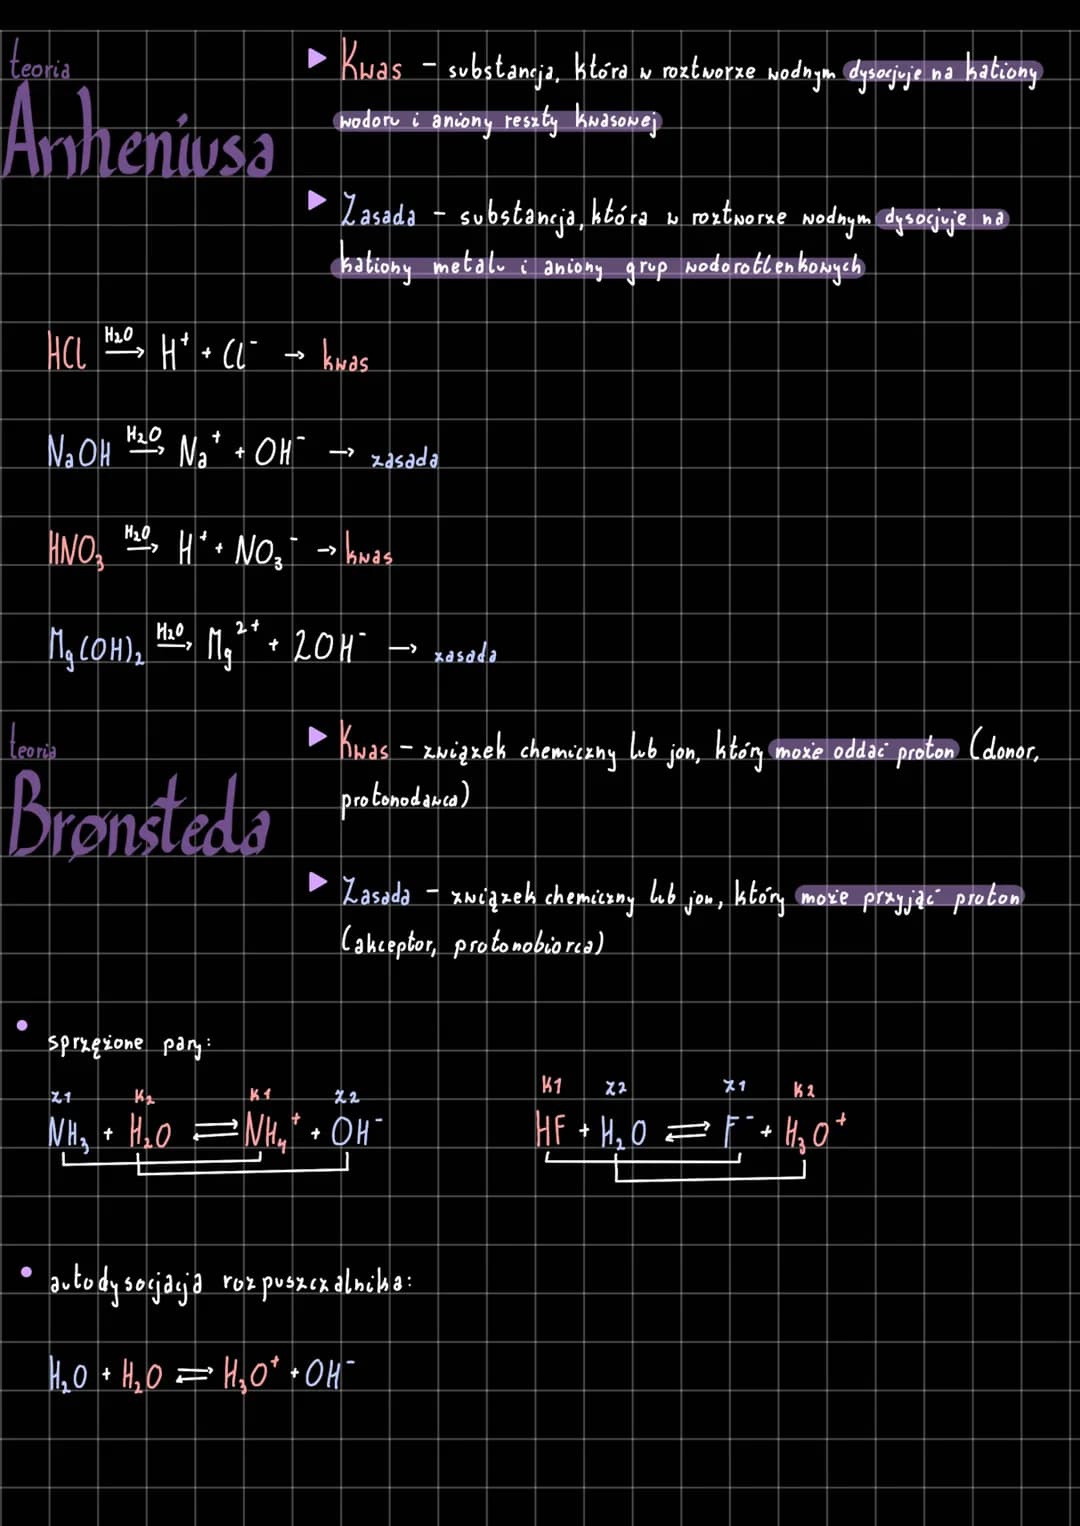 teoria
Arrheniusa
Kwas – substancja, która w roztworze wodnym dysocjuje na kationy
wodoru i aniony reszty kwasowej
Zasada – substancja, która w roztworze wodnym dysocjuje na
kationy metalu i aniony grup wodorotlenkowych
HCl H₂O→ H⁺ + Cl⁻ → kwas
NaOH H₂O→ Na⁺ + OH⁻ → zasada
HNO₃ H₂O→ H⁺ + NO₃⁻ → kwas
Mg(OH)₂ H₂O→ Mg²⁺ + 2OH⁻ → zasada
teoria
Brønsteda
Kwas – związek chemiczny lub jon, który może oddać proton (donor,
protonodawca)
Zasada – związek chemiczny lub jon, który może przyjąć proton
(akceptor, protonobiorca)
• sprzężone pary:
Z1 K2 K1 Z2
NH₃ + H₂O ⇌ NH₄⁺ + OH⁻
K1 Z2 Z1 K2
HF + H₂O ⇌ F⁻ + H₃O⁺
• autodysocjacja rozpuszczalnika:
H₂O + H₂O ⇌ H₃O⁺ + OH⁻